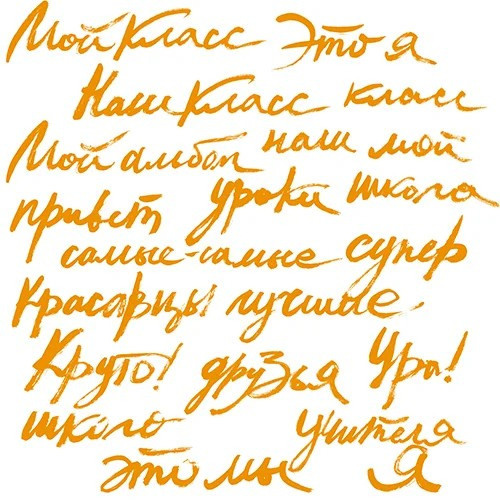 Мой Класс Это я
Наш Класс класс
Мой альбом наш мой
привет уроки школа
самые-самые супер
Красавцы лучшие
Круто! друзья Ура!
школа учителя
это мы Я